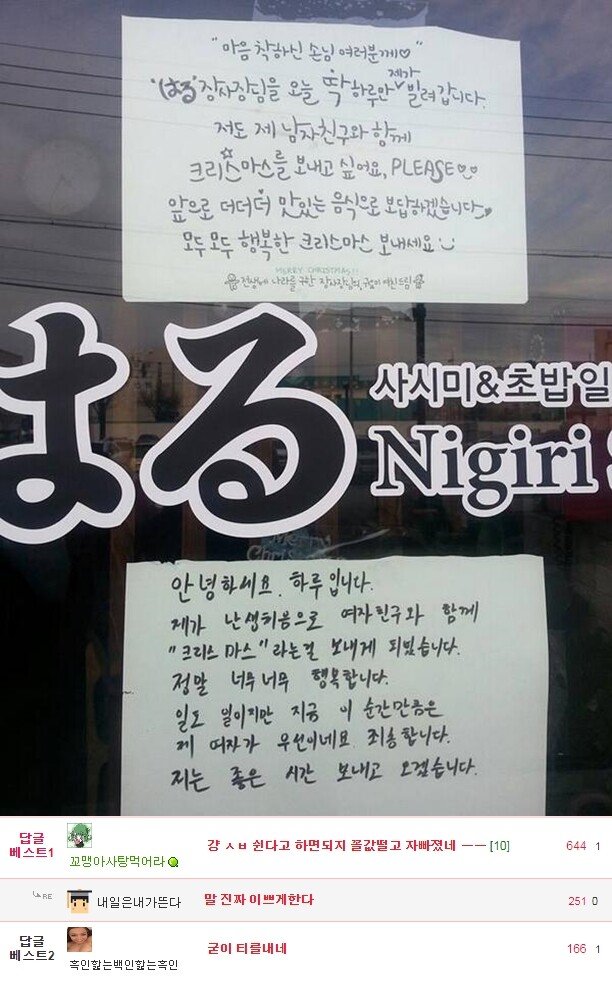 "마음 착하신 손님 여러분께♡"
'はる'장사장님을 오늘 딱 하루만 제가 빌려갑니다.
저도 제 남자친구와 함께
크리스마스를 보내고 싶어요, PLEASE♡♡
앞으로 더더더 맛있는 음식으로 보답하겠습니다
모두모두 행복한 크리스마스 보내세요
MERRY CHRISTMAS!!
전생에 나라를 구한 장사장님의 여친드림
はる
사시미&초밥 일
Nigiri
Merry
안녕하세요. 하루입니다.
제가 난생처음으로 여자친구와 함께
"크리스마스"라는걸 보내게 되었습니다.
정말 너무너무 행복합니다.
일도 일이지만 지금 이 순간만큼은
제 여자가 우선이네요 죄송합니다.
저는 좋은 시간 보내고 오겠습니다.
답글 베스트1 꼬맹아사탕먹어라 걍 ㅅㅂ 쉰다고 하면되지 꼴값떨고 자빠졌네 ㅡㅡ [10] 644 1
RE 내일은내가뜬다 말 진짜 이쁘게한다 251 0
답글 베스트2 흑인핥는백인핥는흑인 굳이 티를내네 166 1